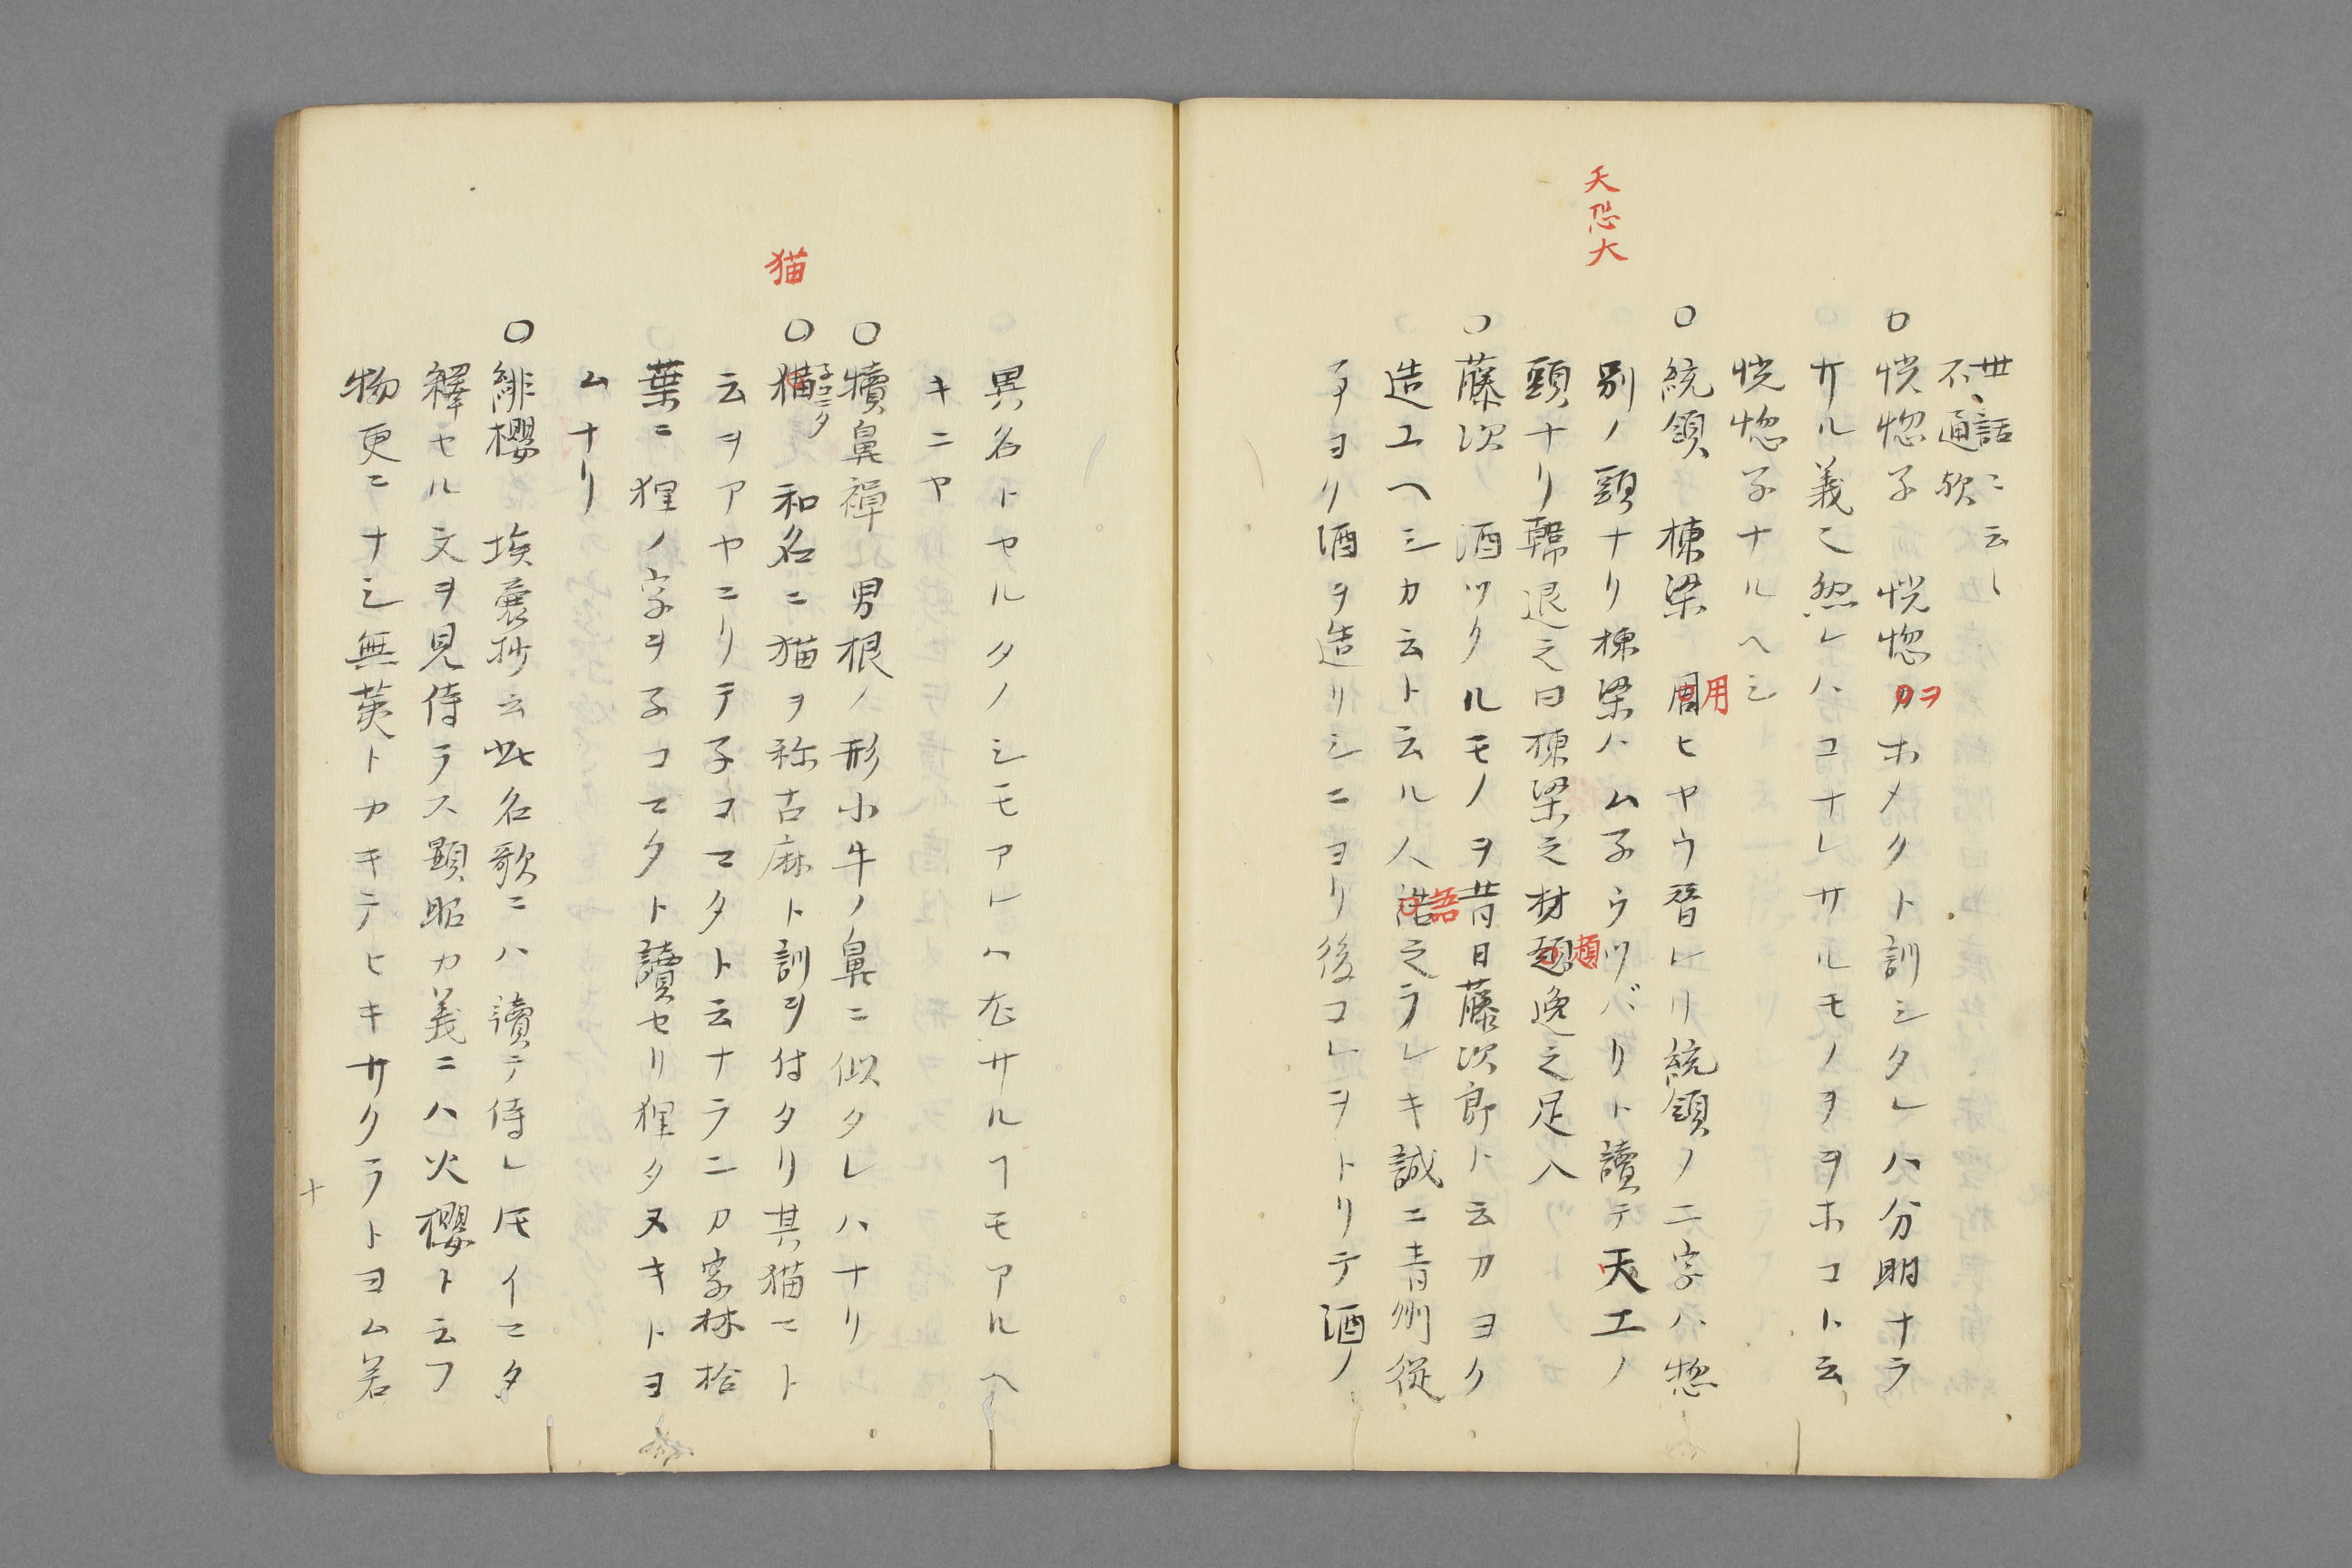 世話ニ云〻
不通歟
○恍惚子　恍惚カホメクト訓シタレハ分明ナラ
ヲ
サル義也然レハコナレサルモノヲホコト云
恍惚子ナルヘシ
○統領　棟梁　周ヒヤウ晉ヒリ統領ノ二字ハ惣
用
別ノ頭ナリ棟梁ハム子ウツバリト讀テ天工ノ
天恐大
頭ナリ韓退之曰棟梁之材趨逸之足入
○藤次　酒ツクルモノヲ昔日藤次郎ト云カヨク
造エヘシカ云ト云ル人浩之ラレキ誠ニ青州従
語
事ヨリ酒ヲ造リシニヨリ後コレヲトリテ酒ノ
異名トセルタノシモアレハ左サルヿモアルヘ
キニヤ
○犢鼻褌　男根ノ形小牛ノ鼻ニ似タレハナリ
猫
○猫　和名ニ猫ヲ称古麻ト訓ヲ付タリ其猫マト
子コマタ
云ヲアヤニリテ子コマタト云ナラニカ字林拾
葉ニ狸ノ字ヲ子コマタト讀セリ狸タヌキトヨ
ムナリ
○緋櫻　埃囊抄云此名歌ニハ讀テ侍レ𪜈イマタ
釋セル文ヲ見侍ラス顕昭カ義ニハ火櫻ト云フ
物更ニナシ無英トカキテヒキサクラトヨム若